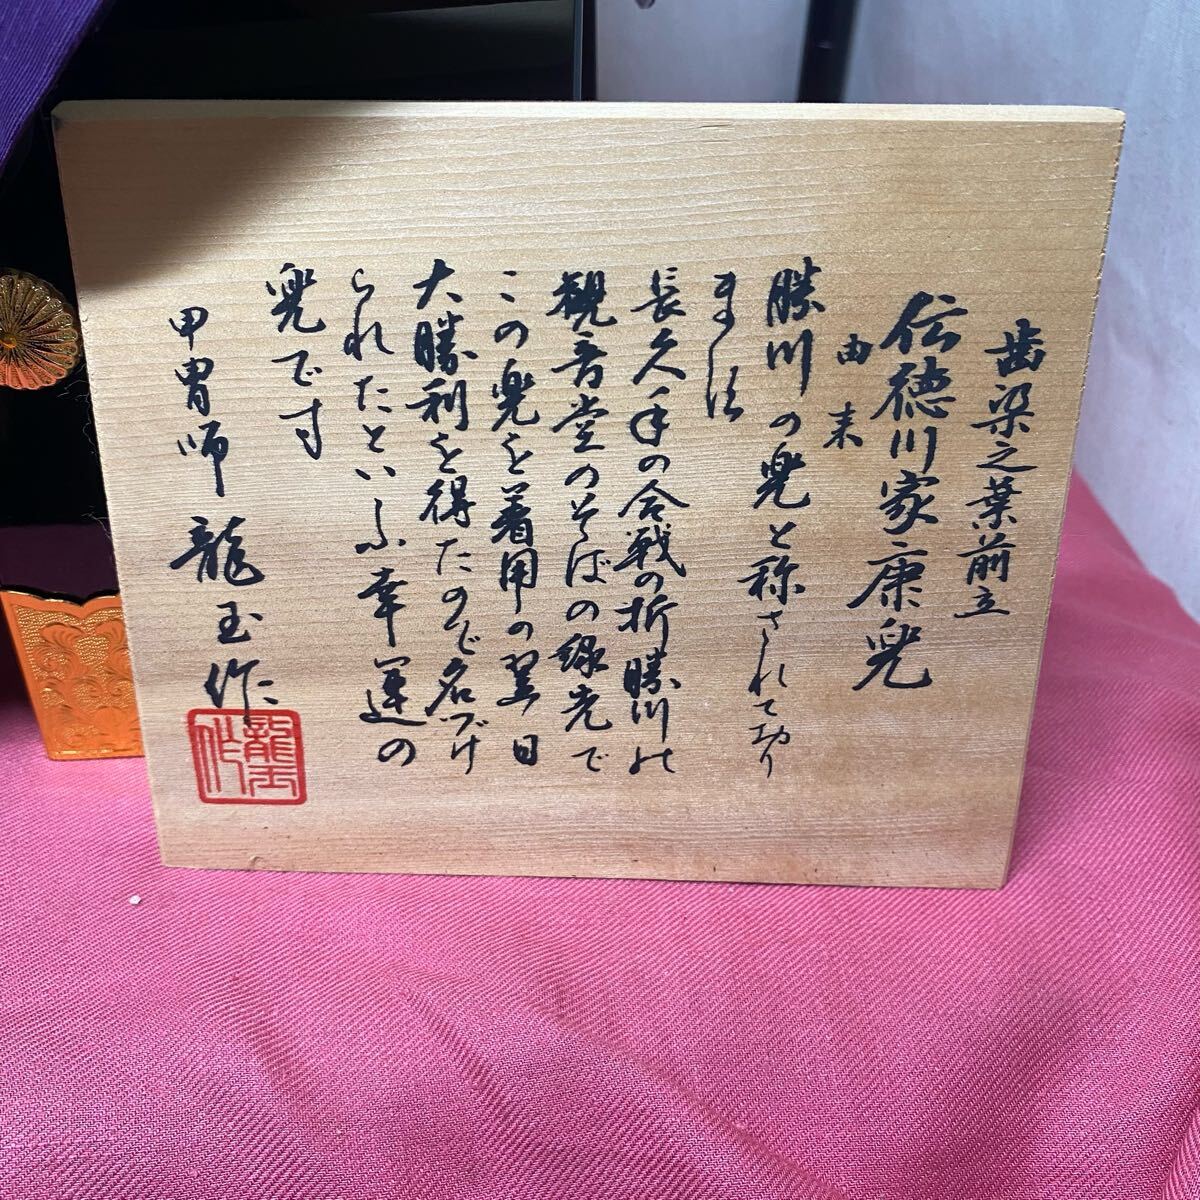 歯朶之葉前立
伝徳川家康兜
由来
勝川の兜と称されて功り
ます
長久手の合戦の折勝川の
観音堂のそばの縁先で
この兜を着用の翌日
大勝利を得たので名づけ
られたといふ幸運の
兜です
甲冑師 龍玉作
龍玉作